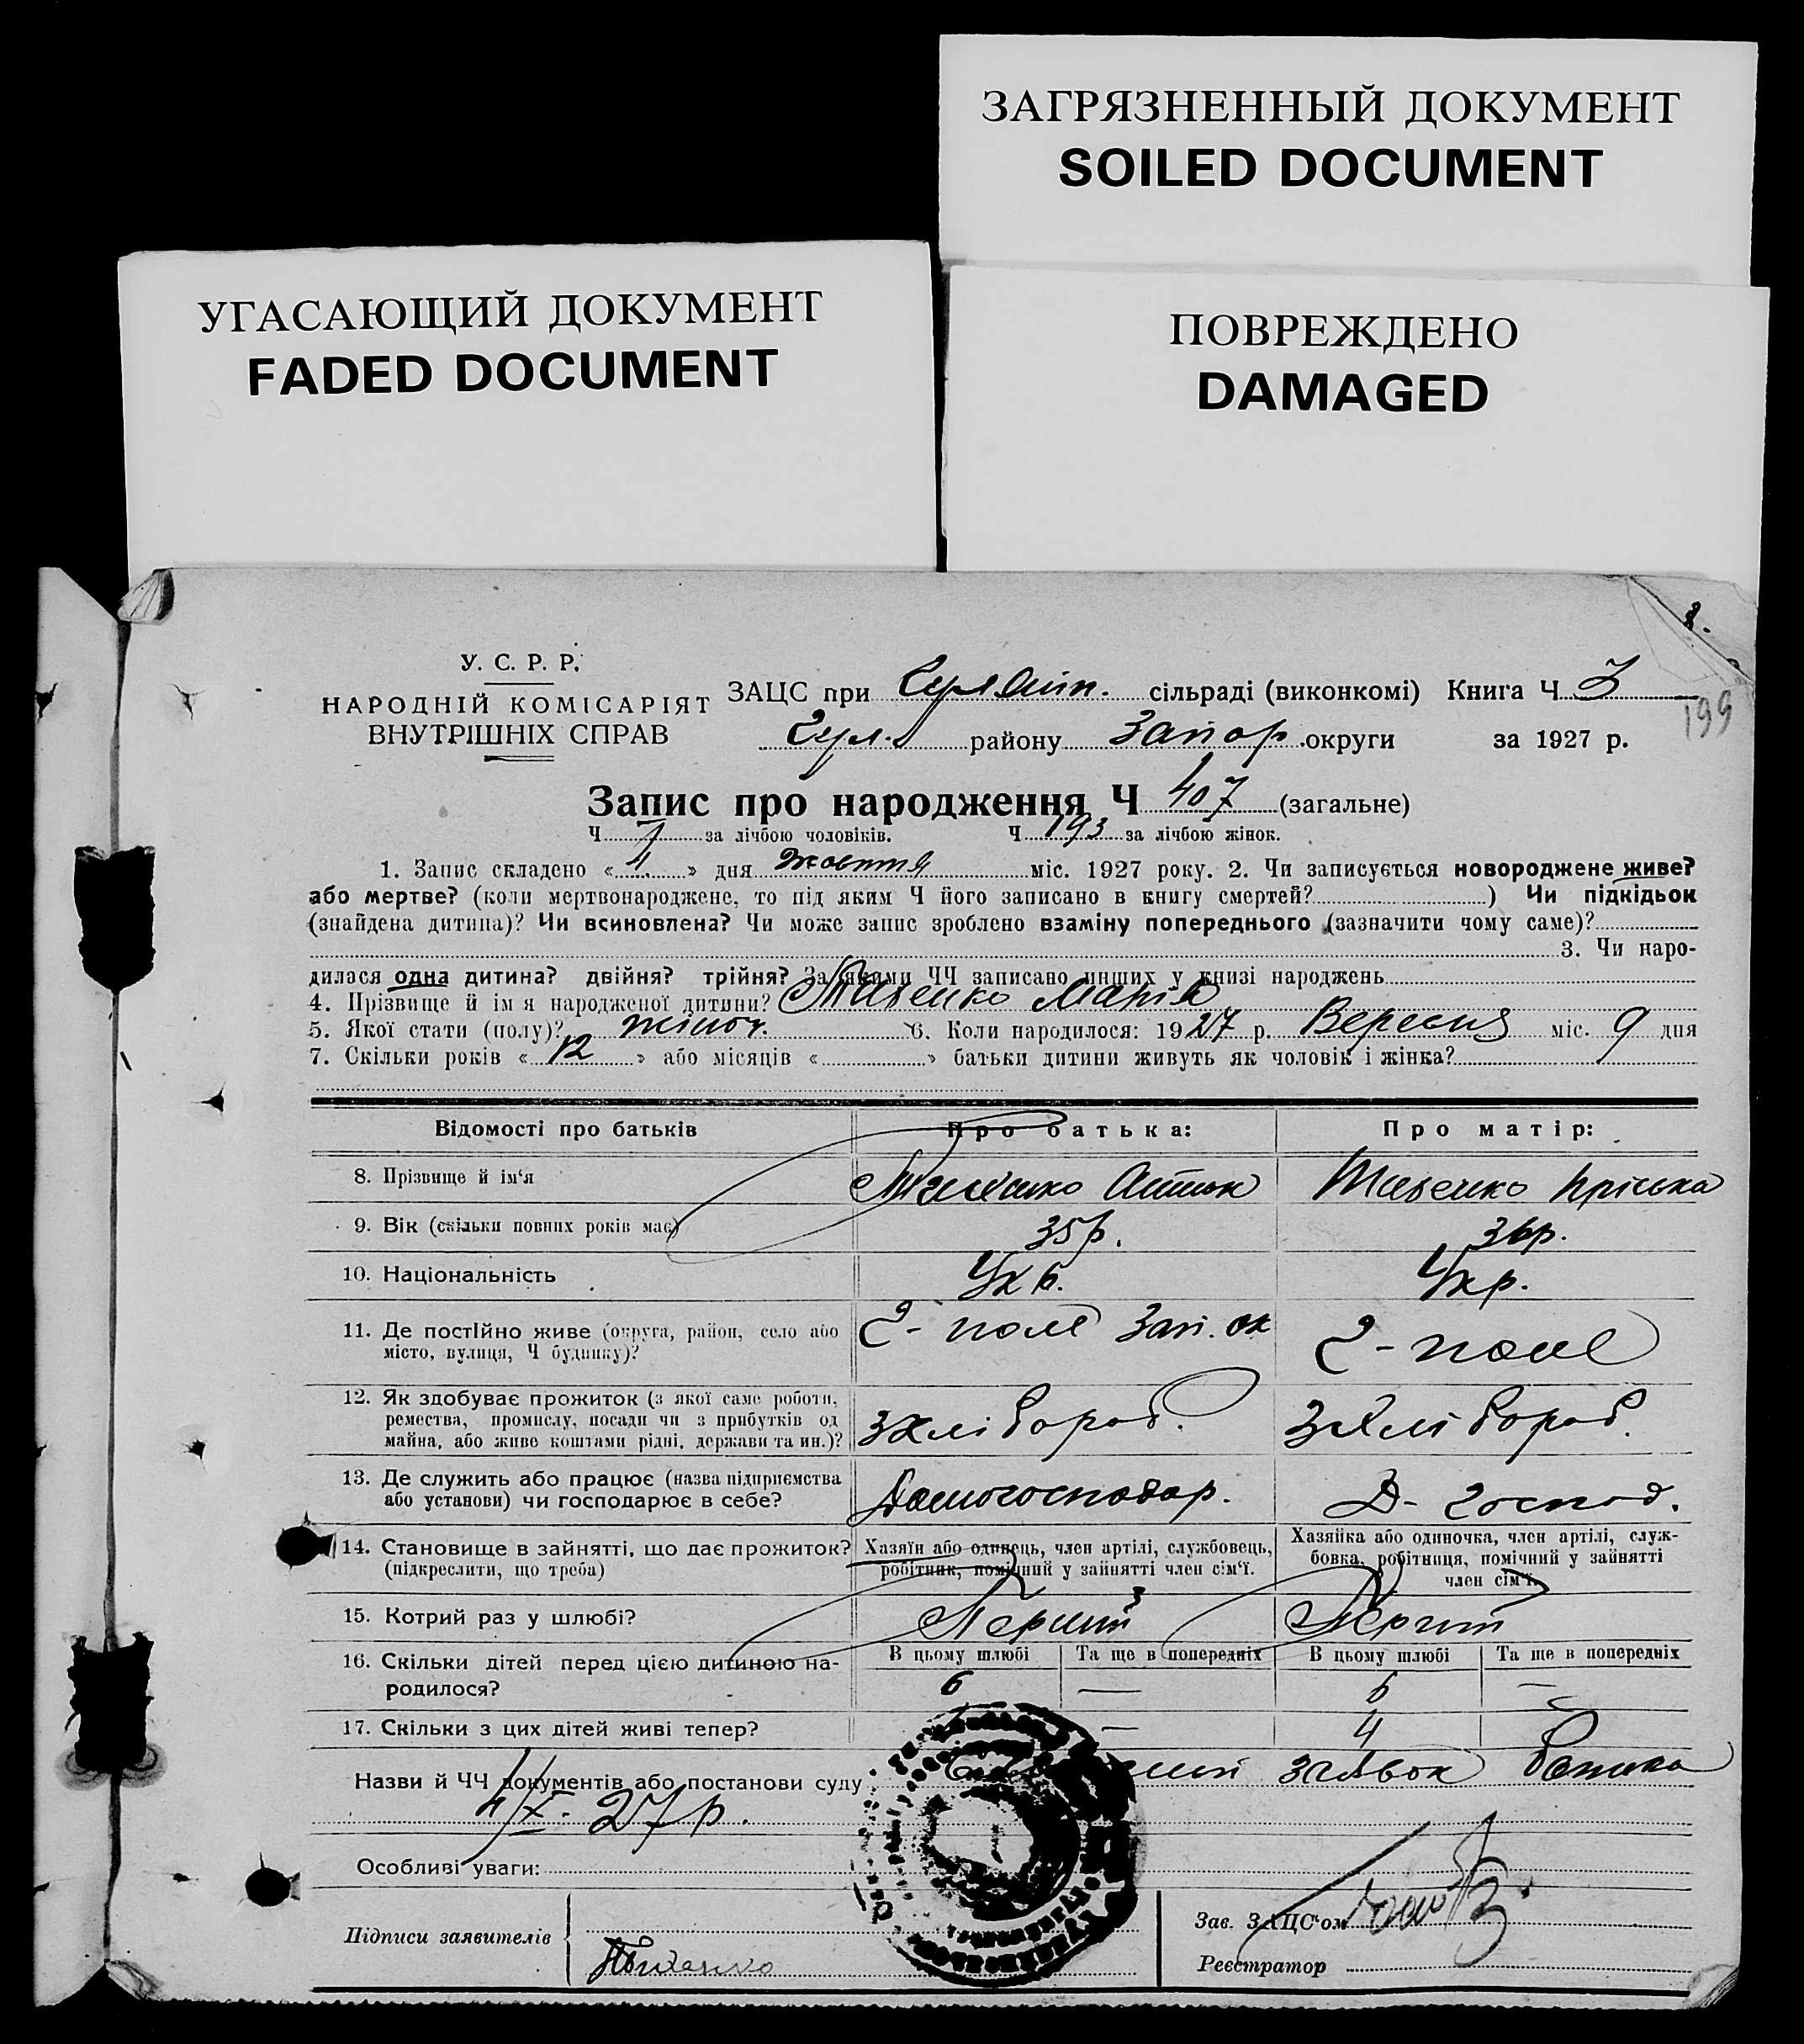 ЗАГРЯЗНЕННЫЙ ДОКУМЕНТ
SOILED DOCUMENT
УГАСАЮЩИЙ ДОКУМЕНТ
FADED DOCUMENT
ПОВРЕЖДЕНО
DAMAGED
199
У. С. Р. Р.
НАРОДНІЙ КОМІСАРІЯТ
ВНУТРІШНІХ СПРАВ
ЗАЦС при сільраді (виконкомі) Книга Ч 3
Гул. району Запор. округи за 1927 р.
Запис про народження Ч 407 (загальне)
Ч за лічбою чоловіків. Ч 193 за лічбою жінок.
1. Запис складено « 4 » дня жовтня міс. 1927 року. 2. Чи записується новороджене живе?
або мертве? (коли мертвонароджене, то під яким Ч його записано в книгу смертей? ) Чи підкідьок
(знайдена дитина)? Чи всиновлена? Чи може запис зроблено взаміну попереднього (зазначити чому саме)?
3. Чи наро-
дилася одна дитина? двійня? трійня? За якими ЧЧ записано инших у книзі народжень
4. Прізвище й ім я народженої дитини? Марія
5. Якої стати (полу)? жіноч. 6. Коли народилося: 1927 р. Вересня міс. 9 дня
7. Скільки років « 12 » або місяців « » батьки дитини живуть як чоловік і жінка?
Відомості про батьків
Про батька:
Про матір:
8. Прізвище й ім'я
9. Вік (скільки повних років має) 35 р. 36 р.
10. Національність Укр. Укр.
11. Де постійно живе (округа, район, село або
місто, вулиця, Ч будинку)?
Г-поле Зап. ок
Г-поле
12. Як здобуває прожиток (з якої саме роботи,
ремества, промислу, посади чи з прибутків од
майна, або живе коштами рідні, держави та ин.)?
З хлібороб.
З хлібороб.
13. Де служить або працює (назва підприємства
або установи) чи господарює в себе?
Домогосподар.
Д-господ.
14. Становище в зайнятті, що дає прожиток?
(підкреслити, що треба)
Хазяїн або одинець, член артілі, службовець,
робітник, помічний у зайнятті член сім'ї.
Хазяйка або одиночка, член артілі, служ-
бовка, робітниця, помічний у зайнятті
член сім'ї.
15. Котрий раз у шлюбі?
16. Скільки дітей перед цією дитиною на-
родилося?
В цьому шлюбі Та ще в попередніх В цьому шлюбі Та ще в попередніх
6 — 6 —
17. Скільки з цих дітей живі тепер? — 4
Назви й ЧЧ документів або постанови суду батька
4/X-27 р.
Особливі уваги:
Підписи заявителів
Зав. ЗАЦС'ом
Реєстратор